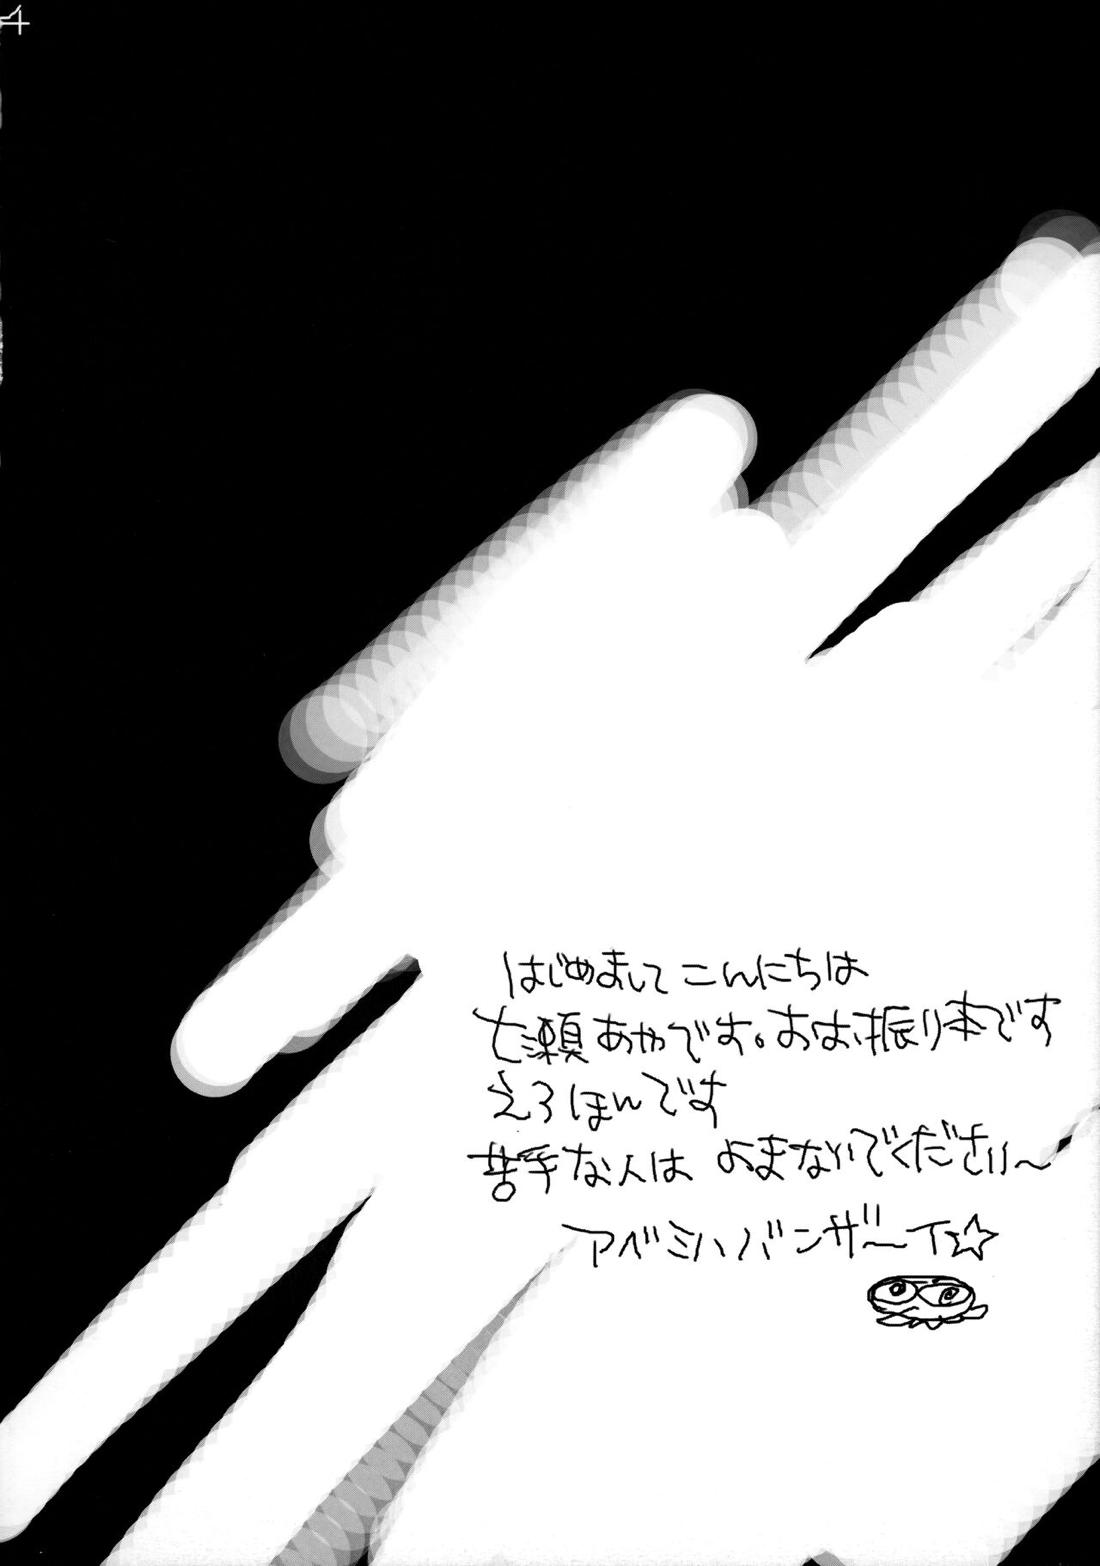 4
はじめまして こんにちは
七瀬あやです。おお振り本です
えろほんです
苦手な人は よまないでくださいい～
アベミハバンザ～イ☆